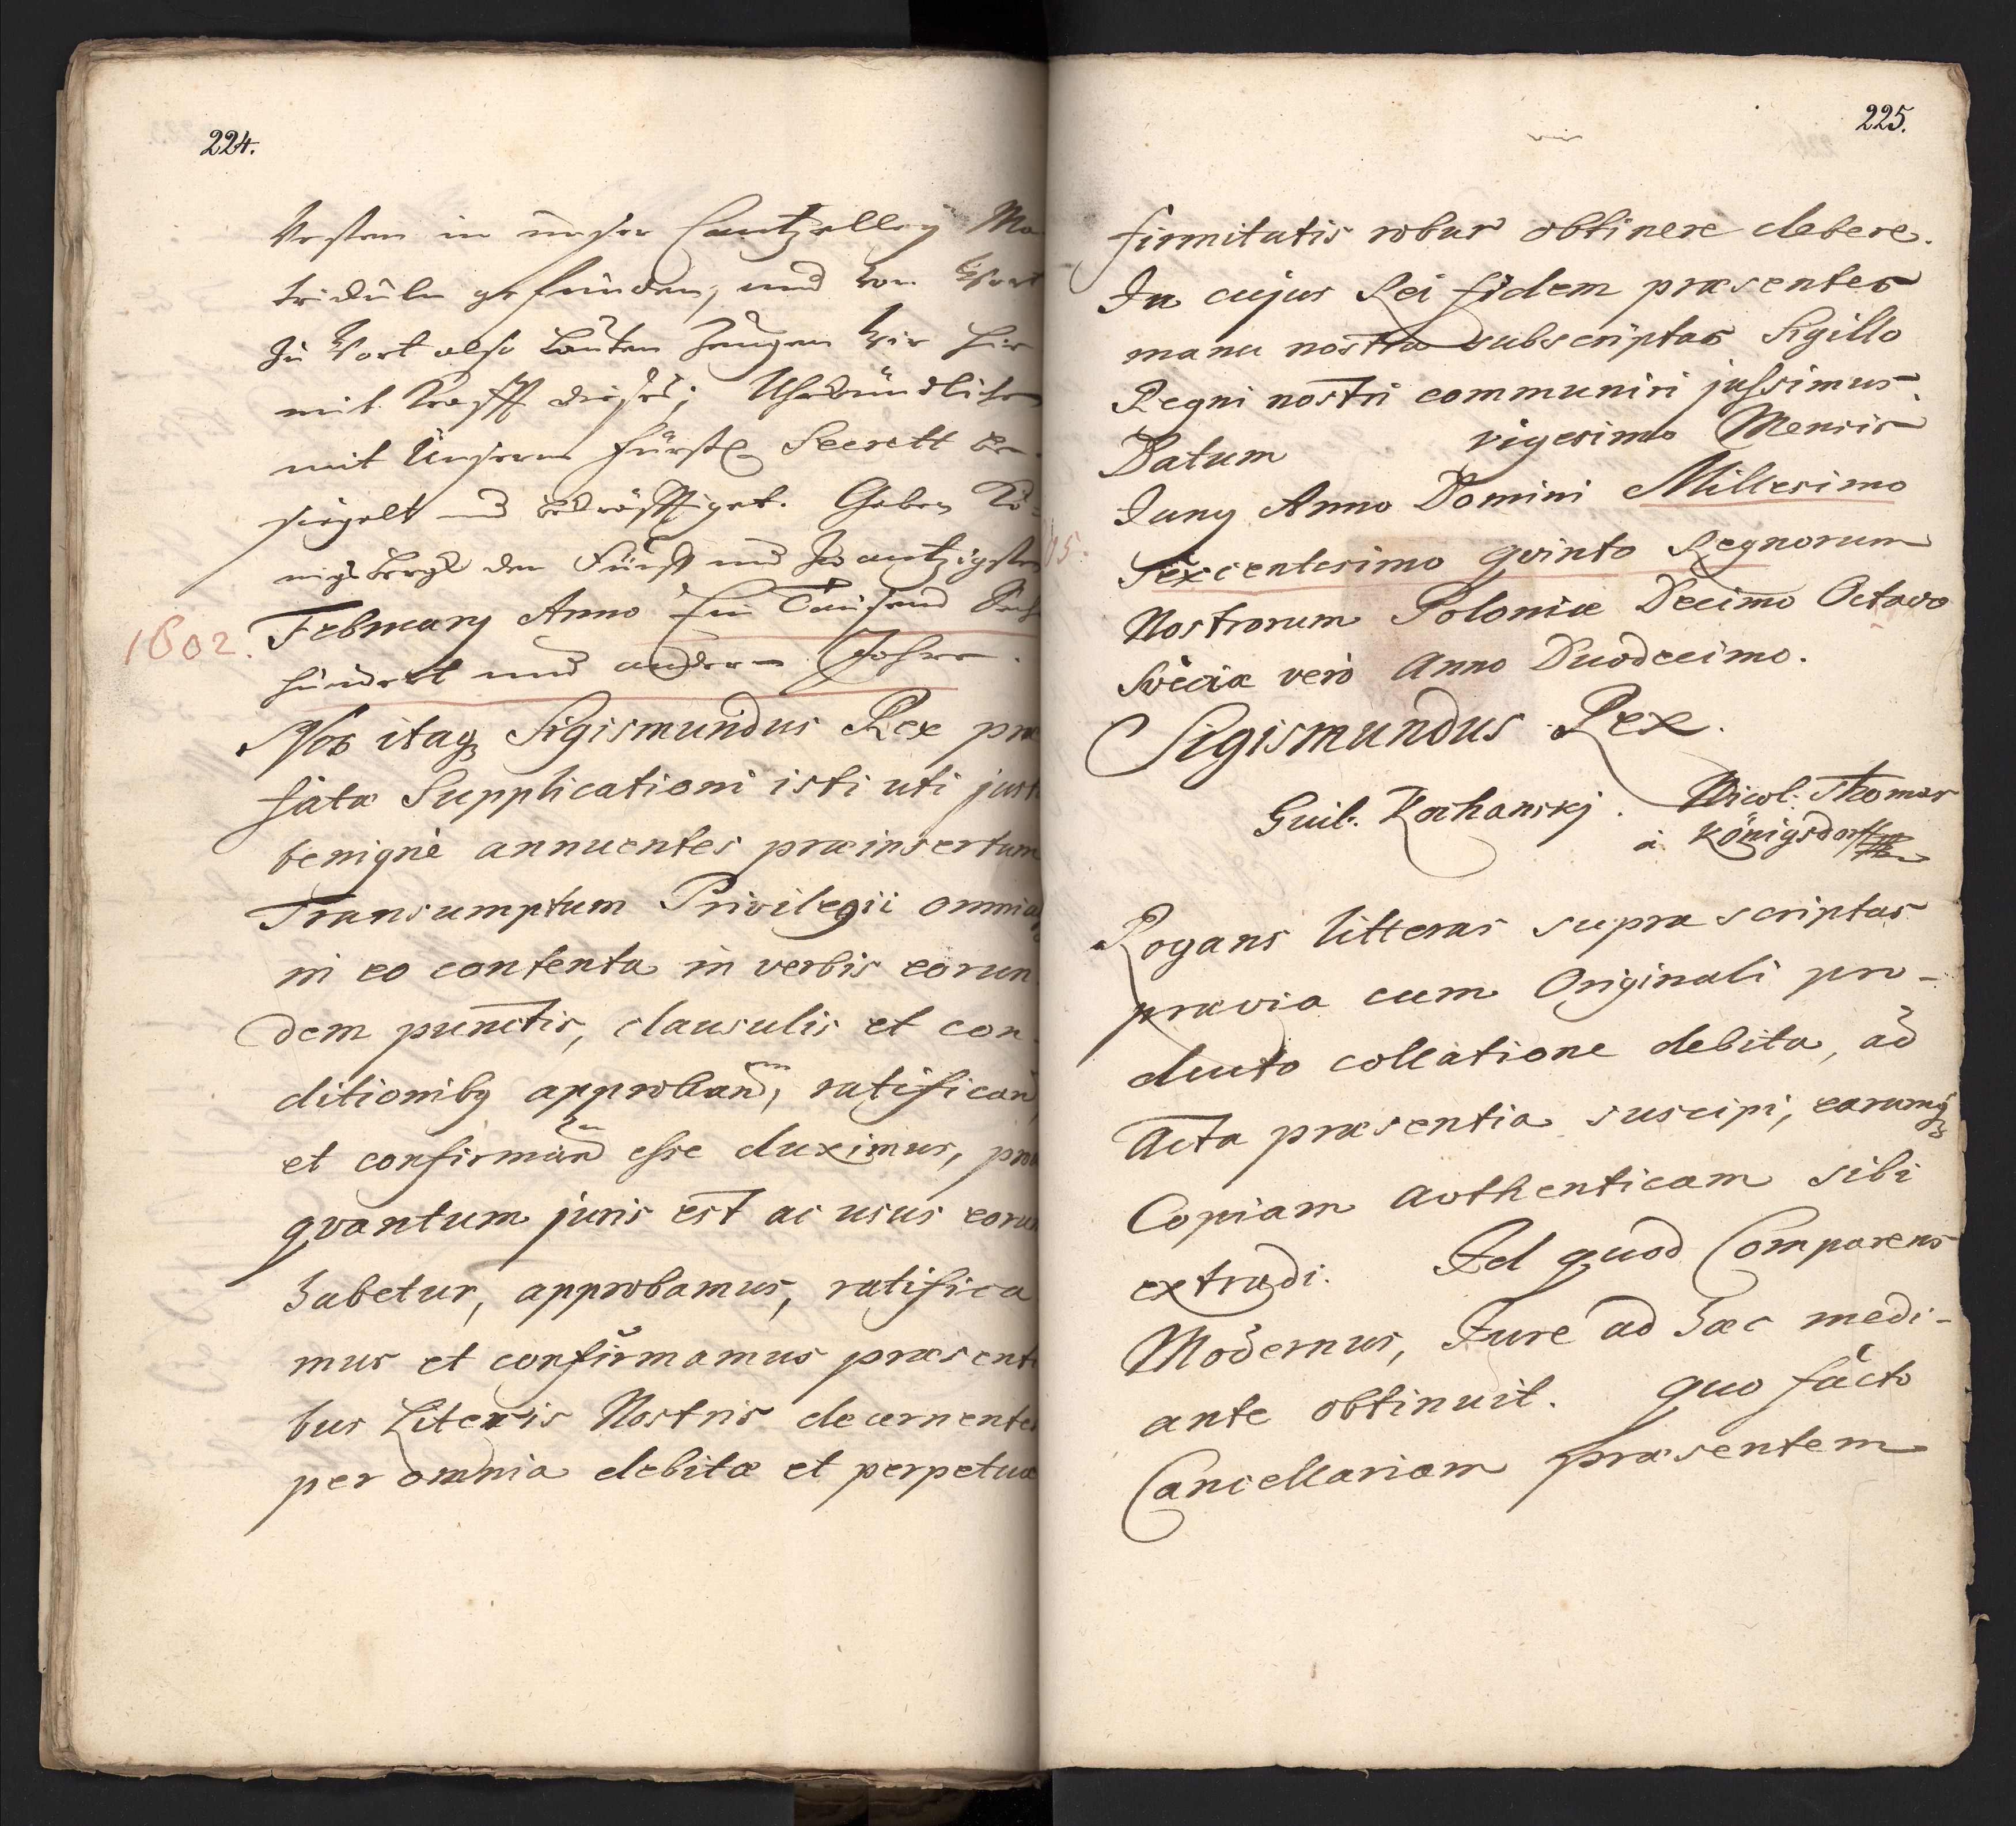 224.
Vesten in unser Cantzelley Ma
trickuln gefunden, und von Wort
zu Wort also lauten zeugen Wir hier
mit Krafft dieses; Uhrkündlichen
mit Unserm Fürstl. Secrett be
siegelt und bekräfftiget. Geben Kö
nigsbergk den Fünff und Zwantzigsten
1602.
February Anno Ein Tausend Sechs
hundert und andern Jahre.
Nos itaq, Sigismundus Rex præ
fatæ Supplicationi isti uti just
benignè annuentes præinsertum
Transumptum Privilegii omniaq
in eo contenta in verbis eorun
dem punctis, clausulis et con
ditioniby approband, ratifican
et confirmand esse duximus, pro
qvantum juris est ac usus eorum
habetur, approbamus, ratifica
mus et confirmamus præsenti
bus Literis Nostris decernentes
per omnia debitæ et perpetuæ
225.
firmitatis robur obtinere debere.
In cujus Rei fidem præsentes
manu nostra subscriptas Sigillo
Regni nostri communiri jussimus.
Datum vigesimo Mensis
Juny Anno Domini Millesimo
05.
Sexcentesimo qvinto Regnorum
Nostrorum Poloniæ Decimo Octavo
Sveciæ verò Anno Duodecimo.
Sigismundus Rex.
Guil. Kochanskj. Nicol: Thomas
à Königsdorff
Rogans litteras supra scriptas
prævia cum Originali pro-
ducto collatione debita, ad
Acta præsentia suscipi, earumq
Copiam авthenticam sibi
extradi. Id quod Comparens
Modernus, Jure ad hæc medi-
ante obtinuit. quo facto
Cancellariam præsentem